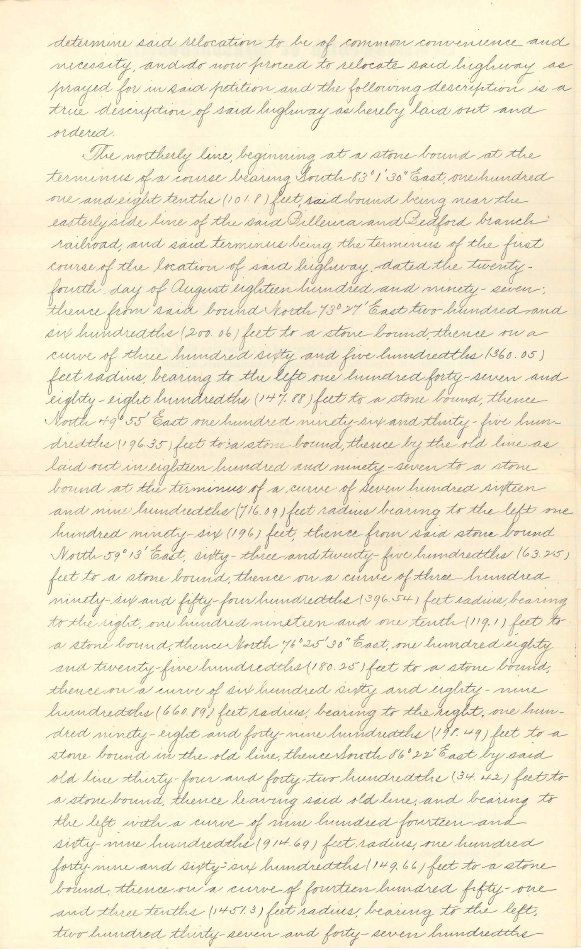 determine said relocation to be of common convenience and
necessity, and do now proceed to relocate said highway as
prayed for in said petition and the following description is a
true description of said highway as hereby laid out and
ordered.
The northerly line, beginning at a stone bound at the
terminus of a course bearing South 83° 1' 30" East, one hundred
one and eight tenths (101.8) feet, said bound being near the
easterly side line of the said Billerica and Bedford branch
railroad, and said terminus being the terminus of the first
course of the location of said highway, dated the twenty-
fourth day of August eighteen hundred and ninety-seven;
thence from said bound North 73° 27' East two hundred and
six hundredths (200.06) feet to a stone bound, thence on a
curve of three hundred sixty and five hundredths (360.05)
feet radius, bearing to the left one hundred forty-seven and
eighty-eight hundredths (147.88) feet to a stone bound, thence
North 49° 55' East one hundred ninety-six and thirty-five hun-
dredths (196.35) feet to a stone bound, thence by the old line as
laid out in eighteen hundred and ninety-seven to a stone
bound at the terminus of a curve of seven hundred sixteen
and nine hundredths (716.09) feet radius bearing to the left one
hundred ninety-six (196) feet, thence from said stone bound
North 59° 13' East, sixty-three and twenty-five hundredths (63.25)
feet to a stone bound, thence on a curve of three hundred
ninety-six and fifty-four hundredths (396.54) feet radius, bearing
to the right, one hundred nineteen and one tenth (119.1) feet to
a stone bound, thence North 76° 25' 30" East, one hundred eighty
and twenty-five hundredths (180.25) feet to a stone bound,
thence on a curve of six hundred sixty and eighty-nine
hundredths (660.89) feet radius, bearing to the right, one hun-
dred ninety-eight and forty-nine hundredths (198.49) feet to a
stone bound in the old line, thence South 86° 22' East by said
old line thirty-four and forty-two hundredths (34.42) feet to
a stone bound, thence leaving said old line, and bearing to
the left with a curve of nine hundred fourteen and
sixty-nine hundredths (914.69) feet radius, one hundred
forty-nine and sixty-six hundredths (149.66) feet to a stone
bound, thence on a curve of fourteen hundred fifty-one
and three tenths (1451.3) feet radius, bearing to the left,
two hundred thirty-seven and forty-seven hundredths